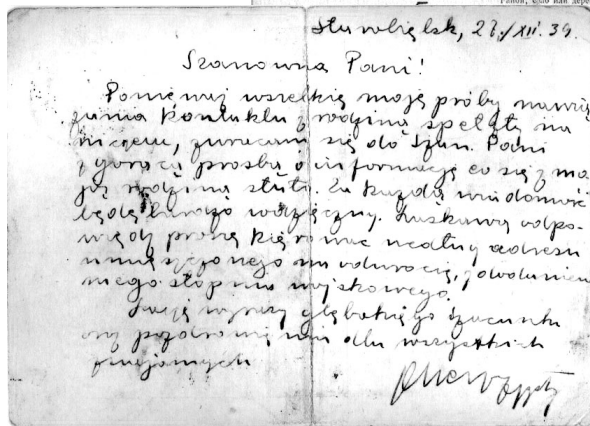 Starobielsk, 27./XII. 39.
Szanowna Pani!
Ponieważ wszelkie moje próby nawią
zania kontaktu z rodziną spełzły na
niczem, zwracam się do Szan. Pani
z gorącą prośbą o informację co się z mo
ją rodziną stało. Za każdą wiadomość
będę bardzo wdzięczny. Łaskawą odpo-
wiedź proszę kierować według adresu
umieszczonego na odwrocie, z dodaniem
mego stopnia wojskowego.
Łączę wyrazy głębokiego szacunku
oraz pozdrowienia dla wszystkich
znajomych